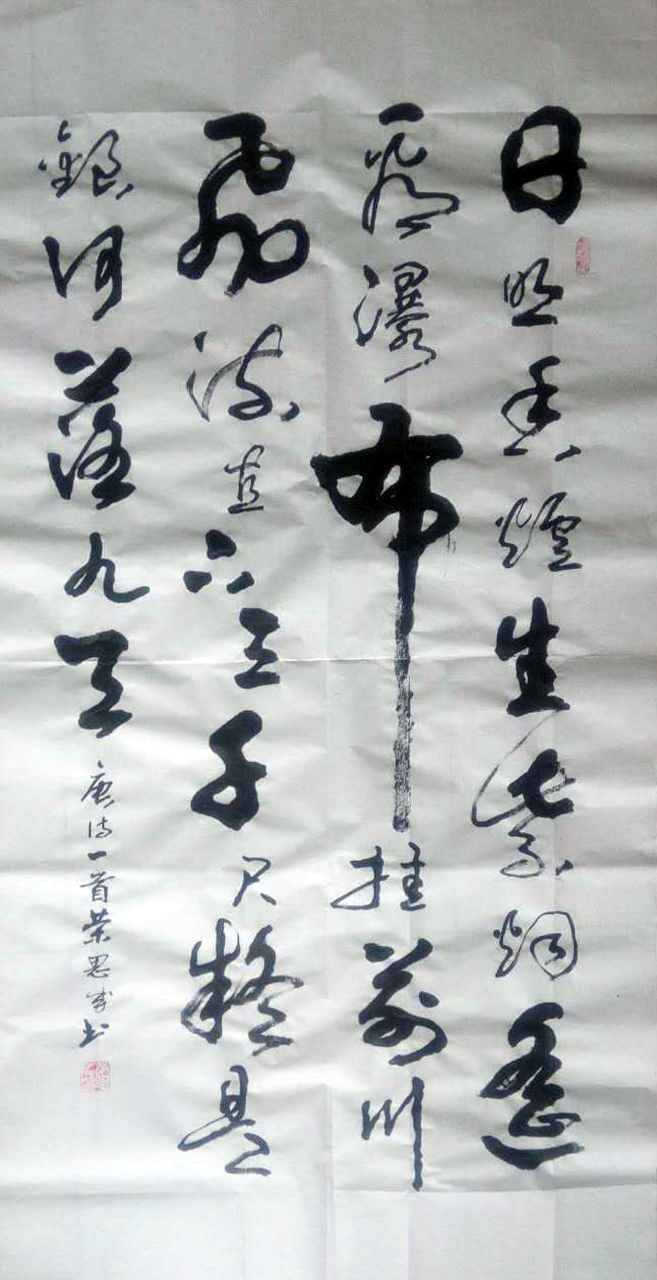 日照香爐生紫烟遥
看瀑布挂前川
飛流直下三千尺疑是
銀河落九天
唐诗一首荣书